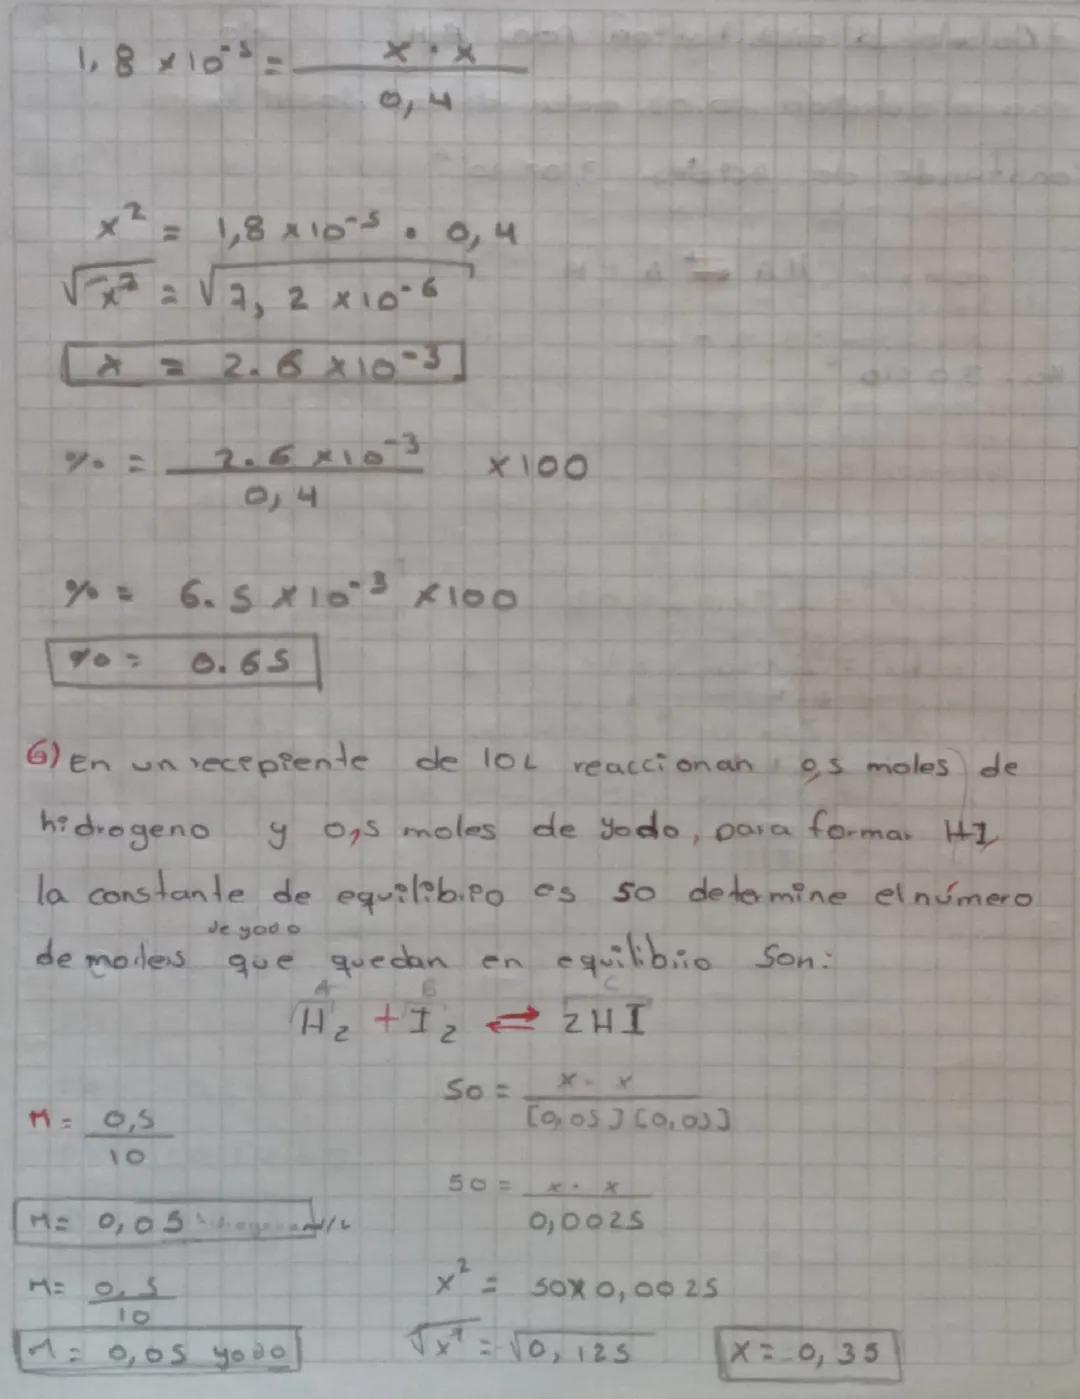 1,8 x 10⁻⁵ = x · x / 0,4
x² = 1,8 x 10⁻⁵ · 0,4
√x² = √7,2 x 10⁻⁶
x = 2.6 x 10⁻³
% = 2.6 x 10⁻³ / 0,4 x 100
% = 6.5 x 10⁻³ x 100
% = 0.65
6) En un recepiente de 10L reaccionan 0,5 moles de
hidrogeno y 0,5 moles de yodo, para formar HI
la constante de equilibrio es 50 determine el número
de yodo
de moles que quedan en equilibrio son:
A B C
H₂ + I₂ ⇌ 2HI
50 = x · x / [0,05] [0,05]
M = 0,5 / 10
50 = x · x / 0,0025
M = 0,05
M = 0,5 / 10
x² = 50 x 0,0025
M = 0,05 yodo
√x² = √0,125
x = 0,35